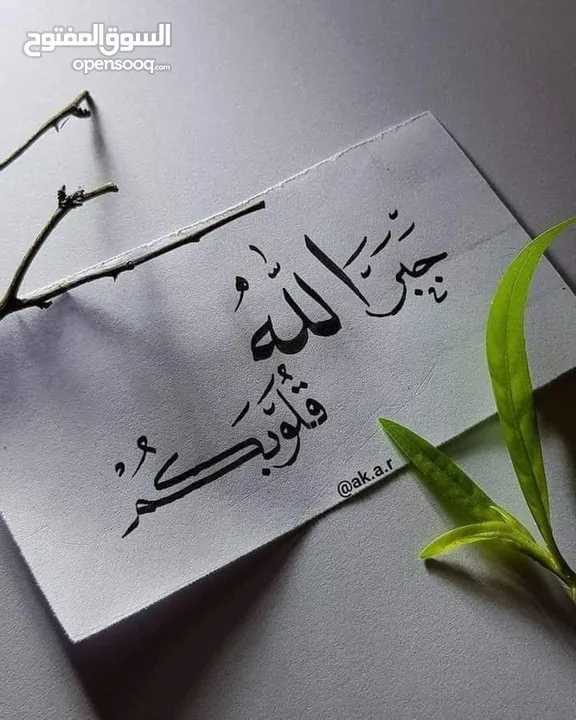 السوق المفتوح
opensooq.com
جَبَرَ اللّٰهُ
قُلُوَبَكُمْ
@ak.a.r